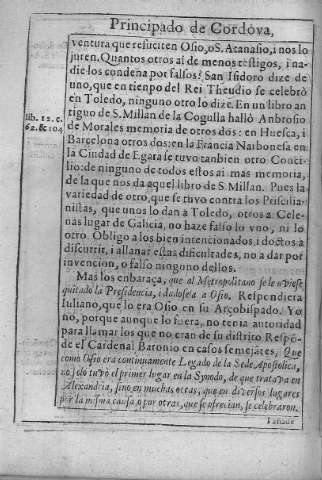 Principado de Cordova,
ventura que resuciten Osio, o S. Atanasio, i nos lo
juren. Quantos otros ai de menos testigos, i na-
die los condena por falsos? San Isidoro dize de
uno, que en tienpo del Rei Theudio se celebrò
en Toledo, ninguno otro lo dize. En un libro an
tiguo de S. Millan de la Cogulla hallò Anbrosio
lib. 12. c.
62. & 104
de Morales memoria de otros dos: en Huesca, i
Barcelona otros dos: en la Francia Narbonesa en
la Ciudad de Egara se tuvo tanbien otro Conci-
lio: de ninguno de todos estos ai mas memoria,
de la que nos da aquel libro de S. Millan. Pues la
variedad de otro, que se tuvo contra los Priscilia-
nistas, que unos lo dan a Toledo, otros a Cele-
nas lugar de Galicia, no haze falso lo vno, ni lo
otro. Obligo a los bien intencionados, i doctos a
discurrir, i allanar estas dificultades, no a dar por
invencion, o falso ninguno dellos.
Mas los enbaraça, que al Metropolitano se le oviese
quitado la Presidencia, i dadose a Osio. Respondiera
Iuliano, que lo era Osio en su Arçobispado. Yo
no, porque aunque lo fuera, no tenia autoridad
para llamar los que no eran de su distrito. Respõ-
de el Cardenal Baronio en casos semejãtes, Que
como Osio era continuamente Legado de la Sede Apostolica,
no solo tuvo el primer lugar en la Synodo, de que tratava en
Alexandria, sino en muchas otras, que en diversos lugares
por la misma causa, o por otras, que se ofrecian, se celebraron.